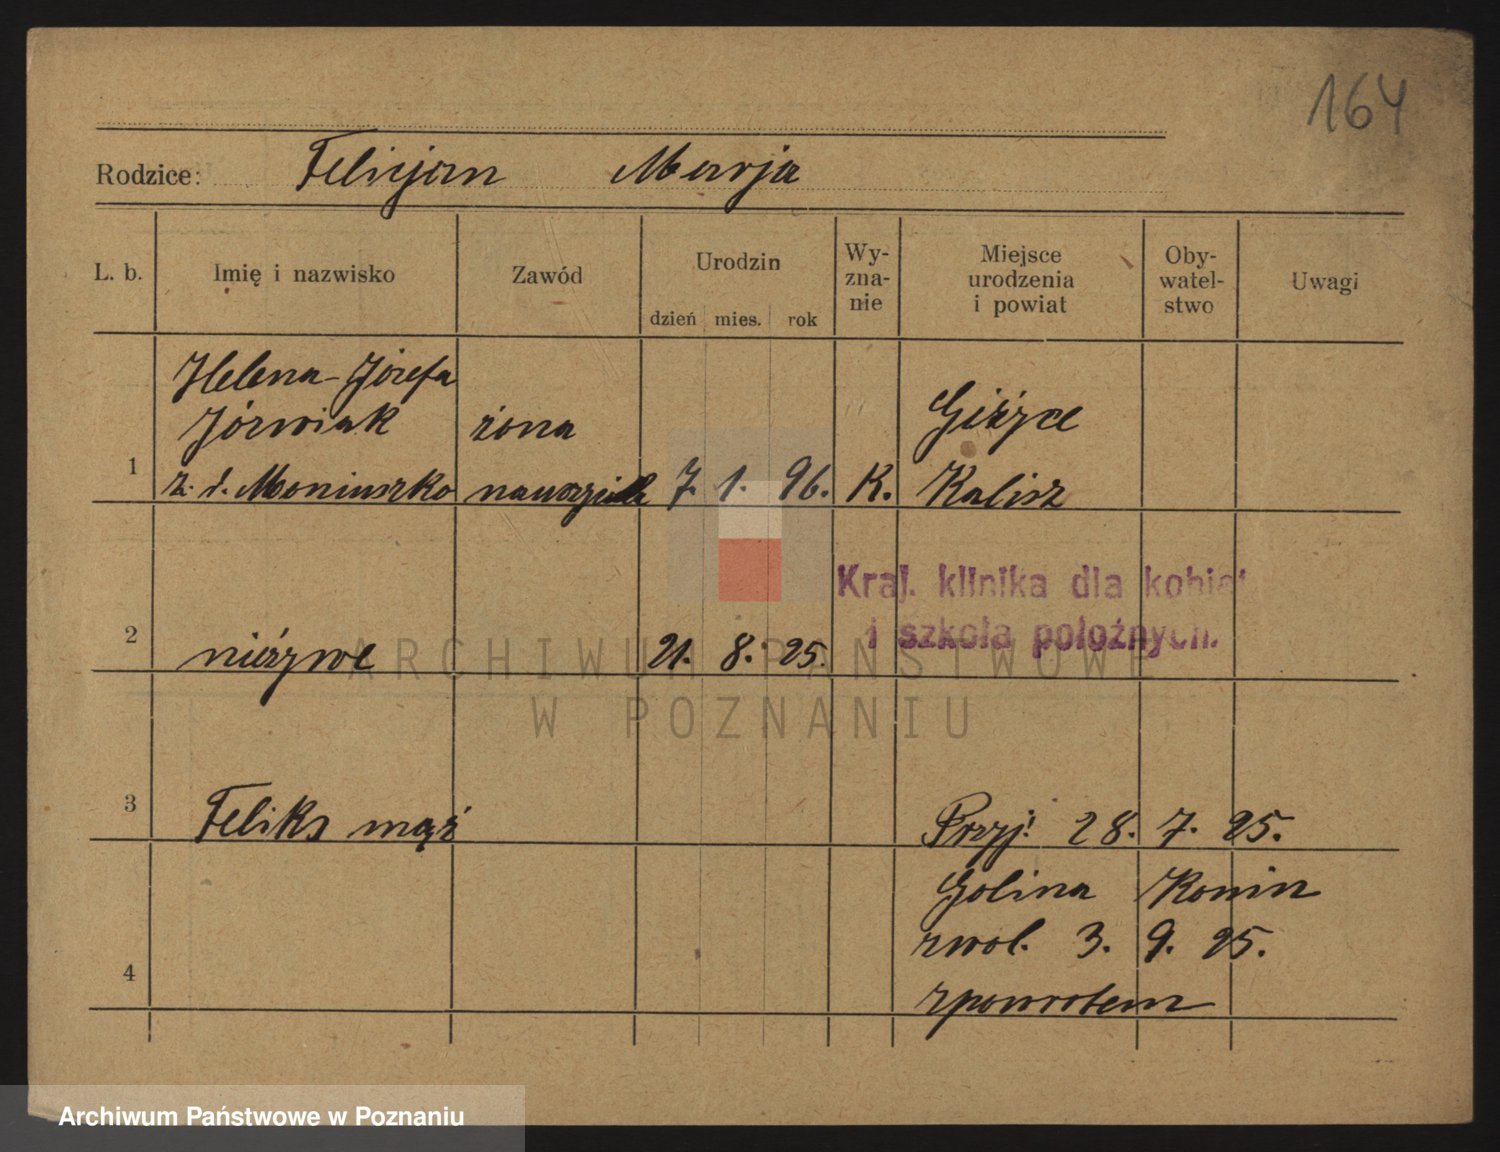 164
Rodzice: Felicjan Marja
L. b. Imię i nazwisko Zawód Urodzin Wy-zna-nie Miejsce urodzenia i powiat Oby-watel-stwo Uwagi
dzień mies. rok
Helena-Józefa
Jóźwiak żona Giżyce
1 z. d. Moniuszko 7. 1. 96. K. Kalisz
Kraj. klinika dla kobiet
i szkoła położnych.
2 nieżywe 21. 8. 25.
ARCHIWUM PAŃSTWOWE
W POZNANIU
3 Feliks mąż Przyj. 28. 7. 25.
Golina Konin
zwol. 3. 9. 25.
4 zpowrotem
Archiwum Państwowe w Poznaniu